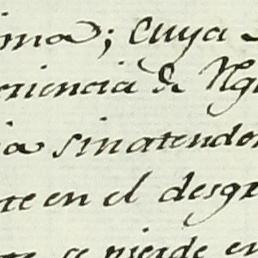 ima; cuya
riencia de Ng
ia sinatendo
te en el desg
se pierde en